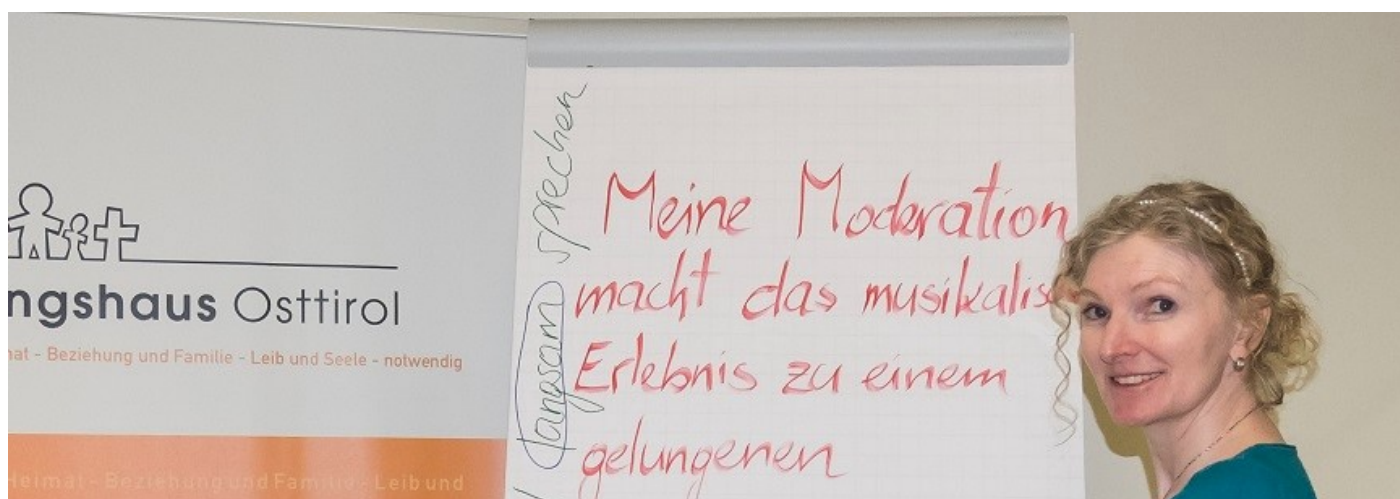 ngshaus Osttirol
mat - Beziehung und Familie - Leib und Seele - notwendig
Heimat - Beziehung und Familie - Leib und
langsam sprechen
Meine Moderation
macht das musikalis
Erlebnis zu einem
gelungenen